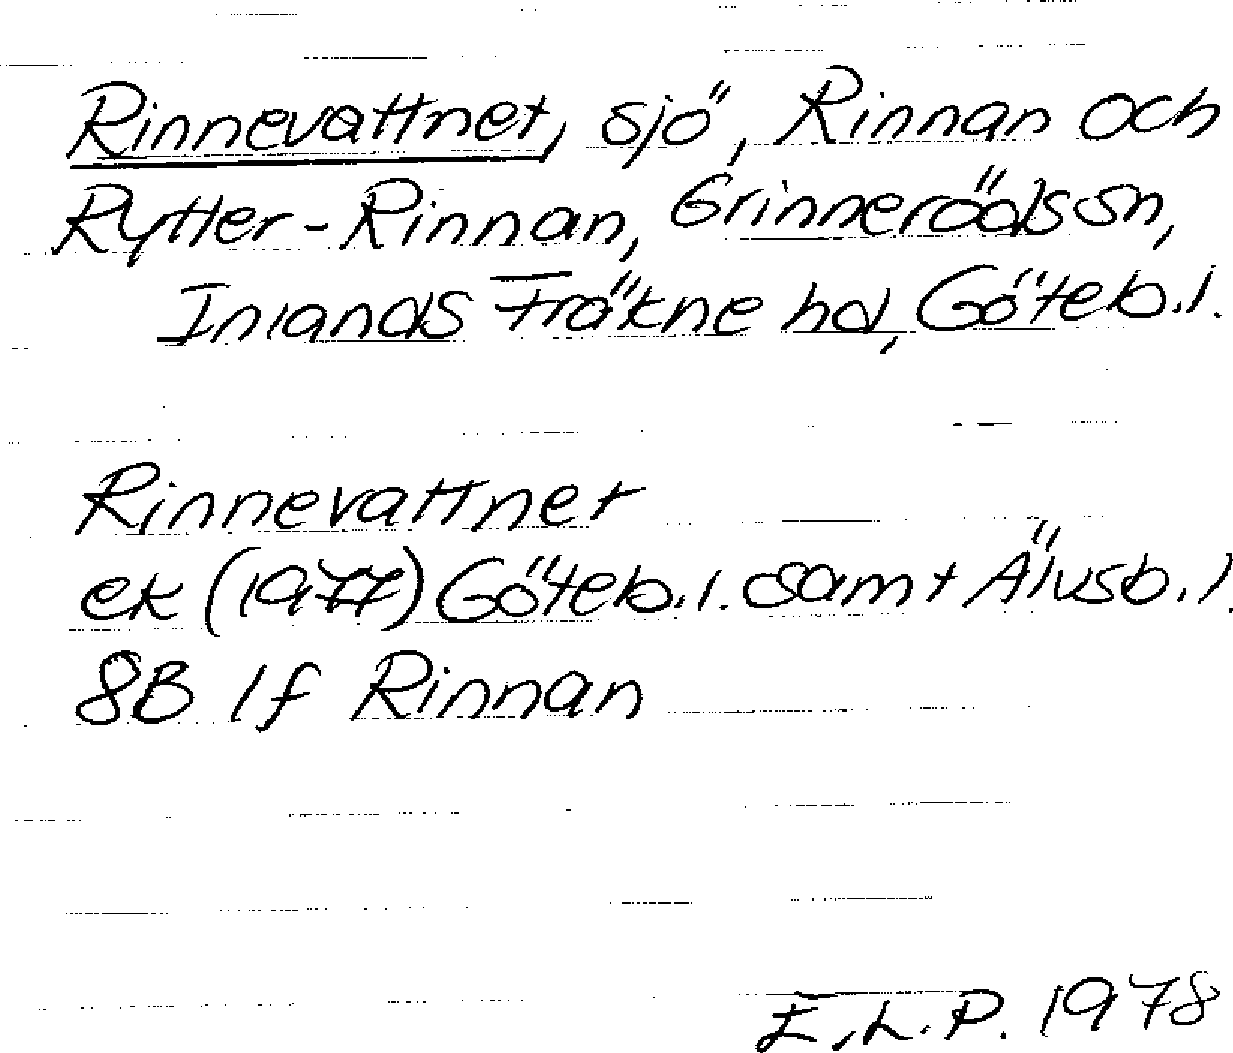 Rinnevattnet, sjö, Rinnan och
Rytter-Rinnan, Grinnerödssn,
Inlands Fräkne hd, Göteb.l.
Rinnevattnet
ek (1977) Göteb.l. samt Älvsb.l.
8B 1f Rinnan
E.L.P. 1978